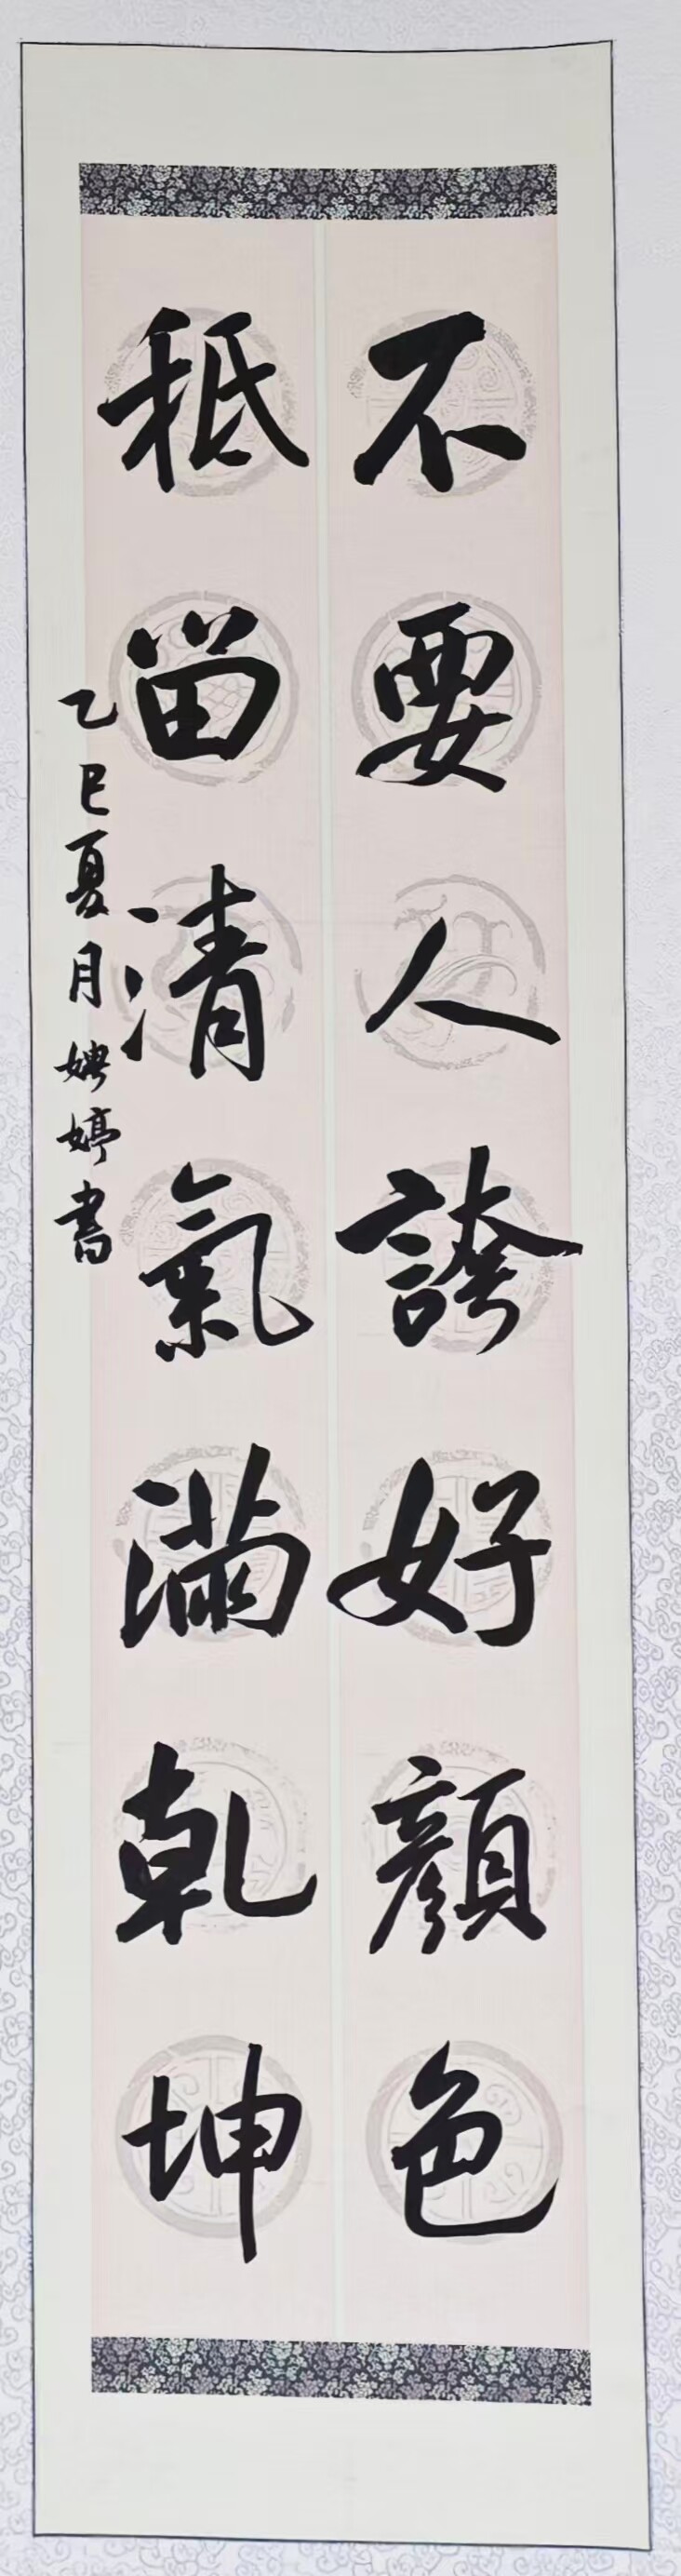 不要人誇好顔色
秪留清氣滿乾坤
乙巳夏月娉婷書